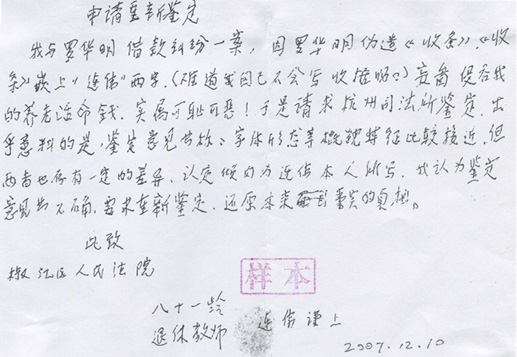 申请重新鉴定
我与罗华明借款纠纷一案，因罗华明伪造《收条》，《收
条》嵌上“连伟”两字，(难道我自己不会写收据吗？)妄图侵吞我
的养老活命钱，实属可耻可恶！于是请求杭州司法所鉴定，出
乎意料的是，鉴定意见书称：字体形态等概貌特征比较接近，但
两者也存有一定的差异，认定倾向为连伟本人所写。我认为鉴定
意见书不确，要求重新鉴定，还原本来事实的真相。
此致
椒江区人民法院
样本
八十一龄
退休教师 连伟谨上
2007.12.10